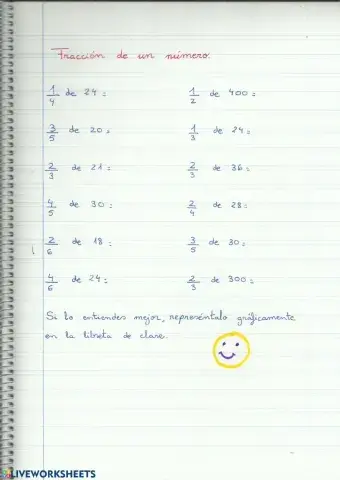 Fracción de un número:
1/4 de 24 =
1/2 de 400 =
3/5 de 20 =
1/3 de 24 =
2/3 de 21 =
2/3 de 36 =
4/5 de 30 =
2/4 de 28 =
2/6 de 18 =
3/5 de 30 =
4/6 de 24 =
2/3 de 300 =
Si lo entiendes mejor, represéntalo gráficamente
en la libreta de clase.
LIVEWORKSHEETS